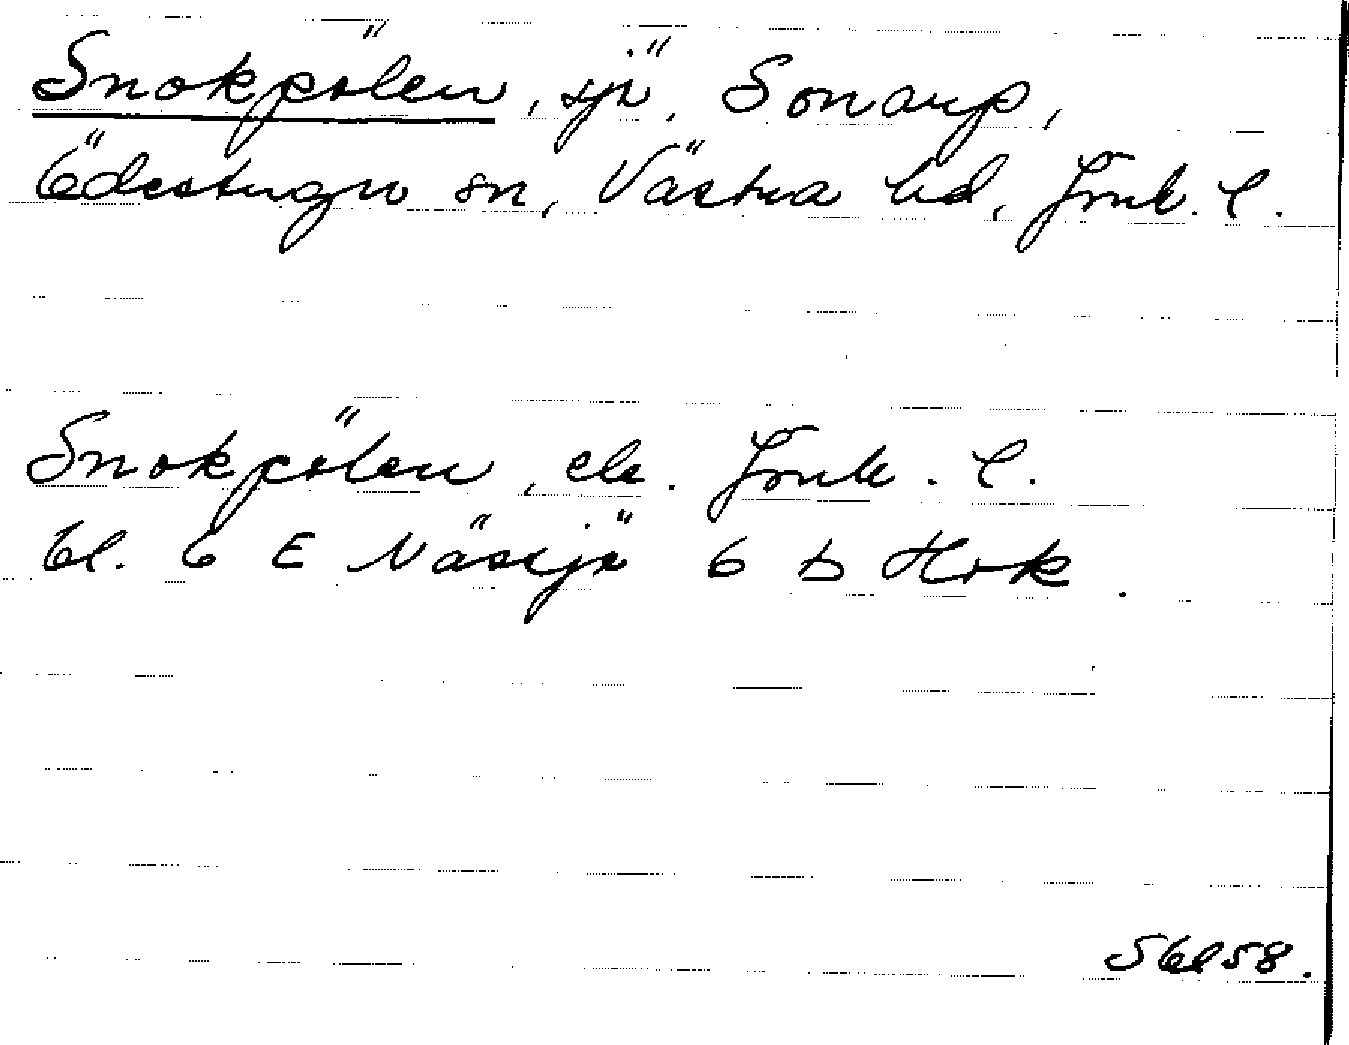 Snokpölen, sjö, Sonarp,
Ödestugu sn, Västra hd, Jönk. l.
Snokpölen, ek. Jönk. l.
bl. 6 E Nässjö 6 D Hok.
SGl58.